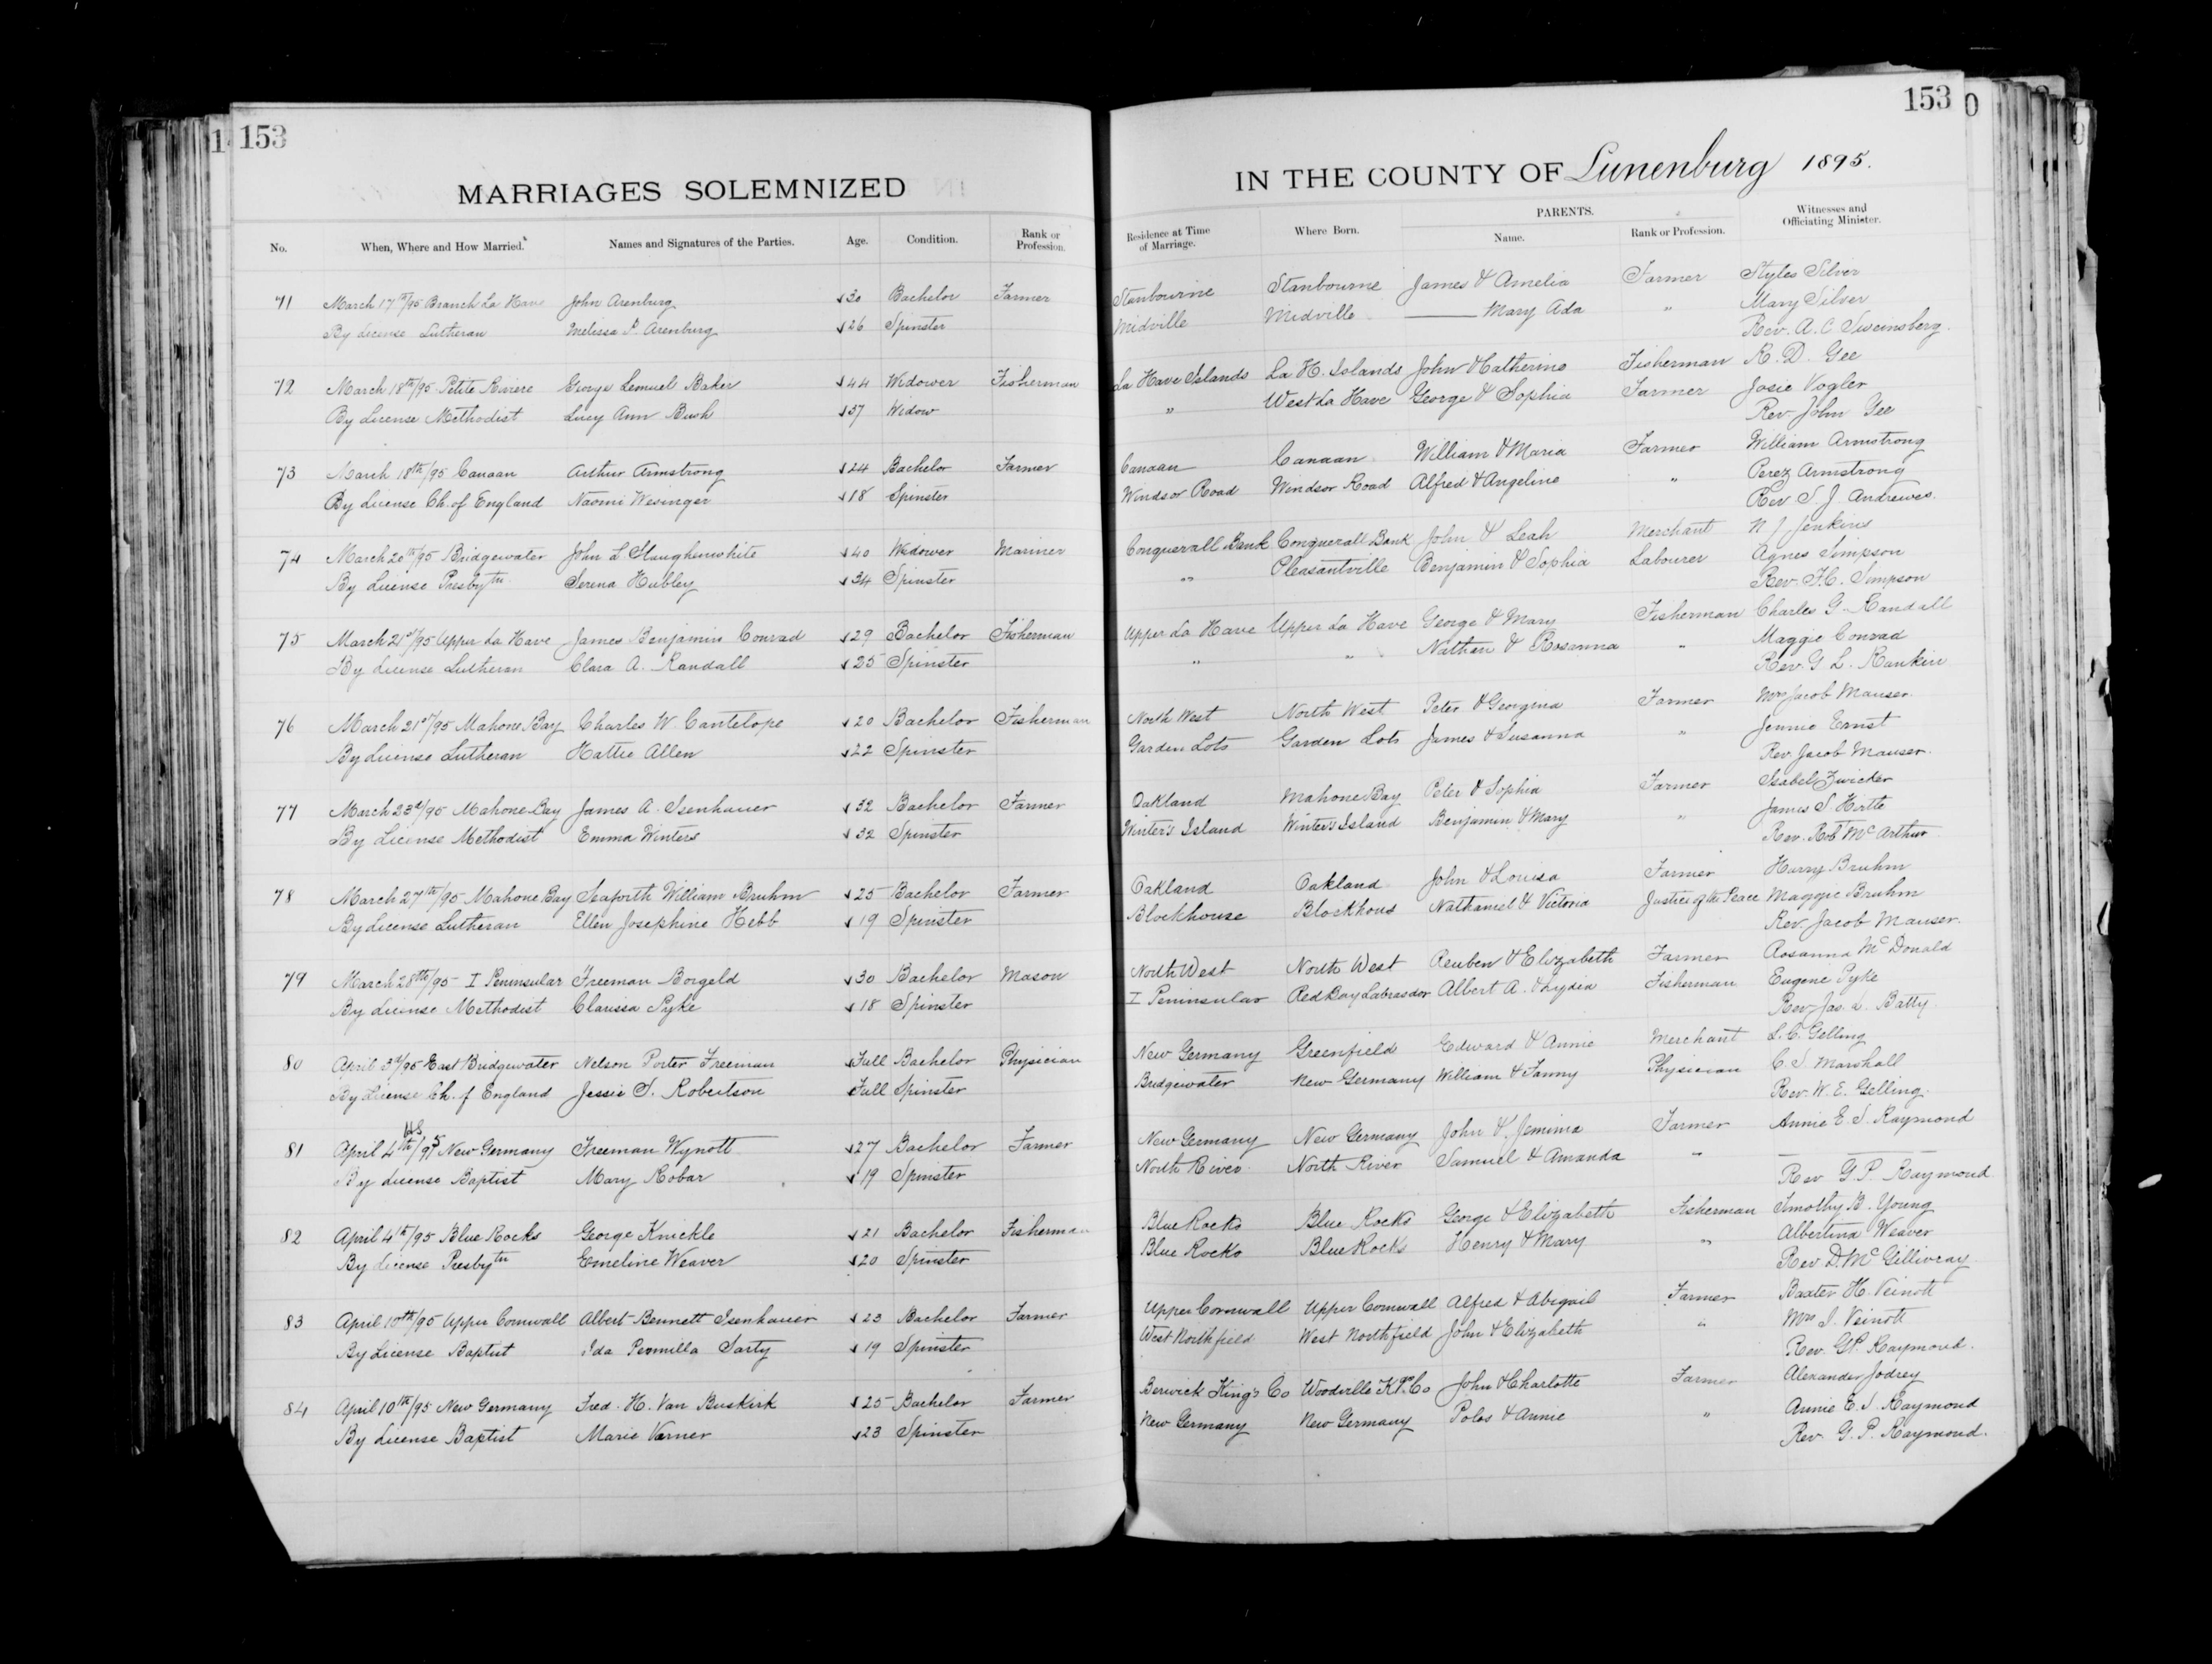 153
153
MARRIAGES SOLEMNIZED IN THE COUNTY OF Lunenburg 1895.
No. When, Where and How Married. Names and Signatures of the Parties. Age. Condition. Rank or Profession. Residence at Time of Marriage. Where Born. PARENTS. Name. Rank or Profession. Witnesses and Officiating Minister.
71 March 17th/95 Branch La Have John Arenburg 30 Bachelor Farmer Stanbourne Stanbourne James & Amelia Farmer Styles Silver
By License Lutheran Melissa P. Arenburg 26 Spinster Midville Midville —— Mary Ada " Mary Silver
Rev. A. C Sweinsberg.
72 March 18th/95 Petite Riviere George Lemuel Baker 44 Widower Fisherman La Have Islands La H. Islands John & Catherine Fisherman R. D. Gee
By License Methodist Lucy Ann Bush 37 Widow " West La Have George & Sophia Farmer Josie Vogler
Rev. John Gee
73 March 18th/95 Canaan Arthur Armstrong 24 Bachelor Farmer Canaan Canaan William & Maria Farmer William Armstrong
By License Ch. of England Naomi Wesinger 18 Spinster Windsor Road Windsor Road Alfred & Angeline " Perez Armstrong
Rev S. J. Andrewes.
74 March 20th/95 Bridgewater John L Slaughenwhite 40 Widower Mariner Conquerall Bank Conquerall Bank John & Leah Merchant N J. Jenkins
By License Presbytn Serena Hubley 34 Spinster " Pleasantville Benjamin & Sophia Labourer Agnes Simpson
Rev. F.C. Simpson
75 March 21st/95 Upper La Have James Benjamin Conrad 29 Bachelor Fisherman Upper La Have Upper La Have George & Mary Fisherman Charles G. Randall
By License Lutheran Clara A. Randall 25 Spinster " " Nathan & Rosanna " Maggie Conrad
Rev. G L. Rankin
76 March 21st/95 Mahone Bay Charles W. Cantelope 20 Bachelor Fisherman North West North West Peter & Georgina Farmer Mrs Jacob Mauser.
By License Lutheran Hattie Allen 22 Spinster Garden Lots Garden Lots James & Susanna " Jennie Ernst
Rev. Jacob Mauser.
77 March 23d/95 Mahone Bay James A. Isenhauer 32 Bachelor Farmer Oakland Mahone Bay Peter & Sophia Farmer Isabel Zwicker
By License Methodist Emma Winters 32 Spinster Winter's Island Winter's Island Benjamin & Mary " James S Hirtle
Rev. Rob McArthur
78 March 27th/95 Mahone Bay Seaforth William Bruhm 25 Bachelor Farmer Oakland Oakland John & Louisa Farmer Harry Bruhm
By License Lutheran Ellen Josephine Hebb 19 Spinster Blockhouse Blockhous Nathaniel & Victoria Justice of the Peace Maggie Bruhm
Rev. Jacob Mauser.
79 March 28th/95 I Peninsular Freeman Borgeld 30 Bachelor Mason North West North West Reuben & Elizabeth Farmer Rosanna McDonald
By License Methodist Clarissa Pyke 18 Spinster I Peninsular Red Bay Labrasdor Albert A. & Lydia Fisherman Eugene Pyke
Rev Jas. L. Batty.
80 April 3d/95 East Bridgewater Nelson Porter Freeman Full Bachelor Physician New Germany Greenfield Edward & Annie Merchant L. C. Gelling
By License Ch. of England Jessie S. Robertson Full Spinster Bridgewater New Germany William & Fanny Physician C. S Marshall
Rev. W. E. Gelling.
81 April 4th/95 New Germany Freeman Wynott 27 Bachelor Farmer New Germany New Germany John & Jemima Farmer Annie E. S. Raymond
By License Baptist Mary Robar 19 Spinster North River North River Samuel & Amanda " — — —
Rev G. P. Raymond
82 April 4th/95 Blue Rocks George Knickle 21 Bachelor Fisherman Blue Rocks Blue Rocks George & Elizabeth Fisherman Timothy B. Young
By License Presbytn Emeline Weaver 20 Spinster Blue Rocks Blue Rocks Henry & Mary " Albertina Weaver
Rev D. McGillivray
83 April 10th/95 Upper Cornwall Albert Bennett Isenhauer 23 Bachelor Farmer Upper Cornwall Upper Cornwall Alfred & Abigail Farmer Baxter H. Veinott
By License Baptist Ida Permilla Sarty 19 Spinster West Northfield West Northfield John & Elizabeth " Mrs S. Veinott
Rev. G.P. Raymond.
84 April 10th/95 New Germany Fred. H. Van Buskirk 25 Bachelor Farmer Berwick King's Co Woodville Kgs Co John & Charlotte Farmer Alexander Jodrey
By License Baptist Marie Varner 23 Spinster New Germany New Germany Polos & Annie " Annie E. S. Raymond
Rev. G. P. Raymond.